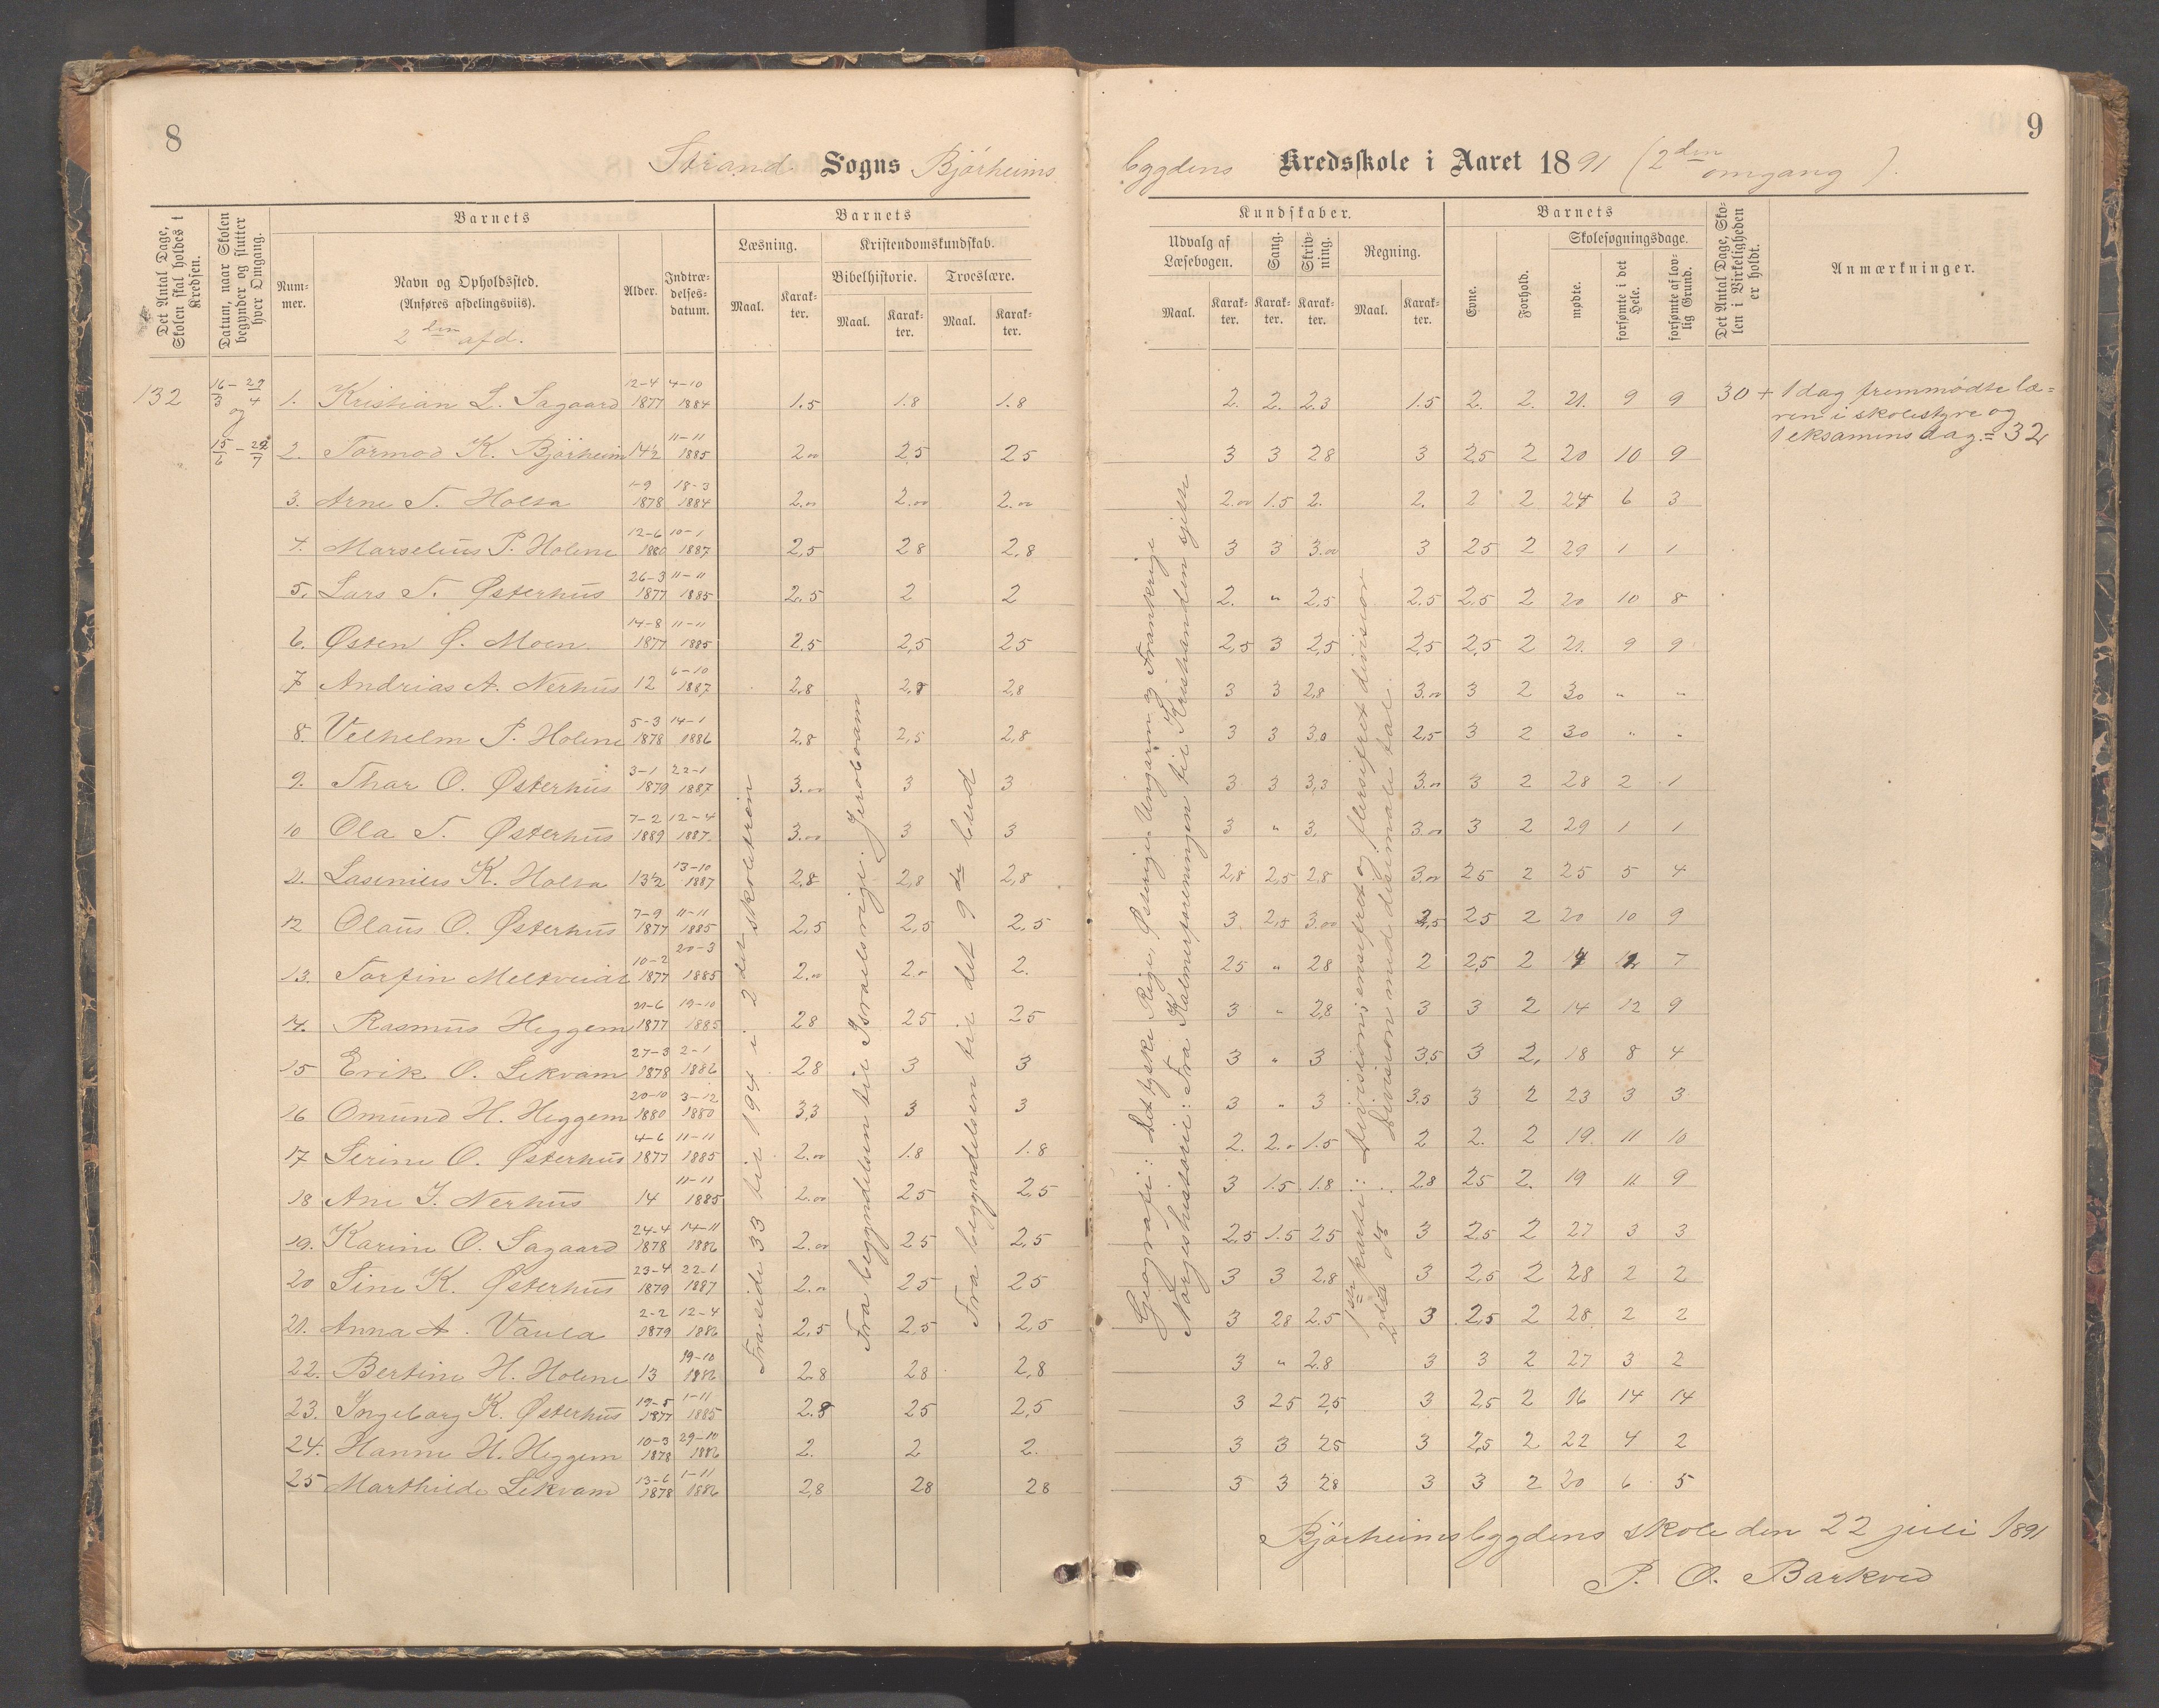 8
9
Strand Sogns Bjørheims
bygdens Kredsskole i Aaret 1891 (2den omgang).
Det Antal Dage, Skolen skal holdes i Kredsen.
Datum, naar Skolen begynder og slutter hver Omgang.
Barnets
Barnets
Kundskaber.
Barnets
Nummer.
Navn og Opholdssted.
(Anføres afdelingsviis).
2den afd.
Alder.
Indtrædelses-datum.
Læsning.
Kristendomskundskab.
Bibelhistorie.
Troeslære.
Maal. Karakter. Maal. Karakter. Maal. Karakter.
Udvalg af Læsebogen.
Sang.
Skrivning.
Regning.
Maal. Karakter. Karakter. Karakter. Maal. Karakter.
Evne.
Forhold.
Skolesøgningsdage.
mødte.
forsømte i det Hele.
forsømte af lovlig Grund.
Det Antal Dage, Skolen i Virkeligheden er holdt.
Anmærkninger.
132 16/3 – 29/4 og 15/6 – 22/7
1. Kristian L. Sagaard 12-4 1877 4-10 1884 1.5 1.8 1.8 2. 2. 2.3 1.5 2. 2. 21. 9 9 30 + 1 dag fremmødte læ=
ren i skolestyre og
1 eksamensdag = 32
2. Tormod K. Bjørheim 14½ 11-11 1885 2.00 25 25 3 3 28 3 2.5 2 20 10 9
3. Arne T. Holta 1-9 1878 18-3 1884 2.00 2.00 2.00 2.00 1.5 2. 2. 2 2 24 6 3
4. Marselius P. Holene 12-6 1880 10-1 1887 2,5 28 2,8 3 3 3.00 3 25 2 29 1 1
5. Lars T. Østerhus 26-3 1877 11-11 1885 2.5 2 2 2. " 2,5 2.5 2,5 2 20 10 8
6. Østen Ø. Moen 14-8 1877 11-11 1885 2.5 2,5 25 2,5 3 2,5 2,5 2,5 2 21. 9 9
7 Andrias A. Nerhus 12 6-10 1887 2,8 2,8 2,8 3 3 2,8 3.00 3 2 30 " "
8. Velhelm P. Holene 5-3 1878 14-1 1886 2.8 2,5 2,8 3 3 3.0 2,5 3 2 30 " "
9. Thor O. Østerhus 3-1 1879 22-1 1887 3.00 3 3 3 3 3,3 3.00 3 2 28 2 1
10 Ola T. Østerhus 7-2 1889 12-4 1887. 3.00 3 3 3 " 3. 3.00 3 2 29 1 1
11. Lasenius K. Holta 13½ 13-10 1887 2,8 2,8 2,8 2,8 2,5 2,8 3.00 25 2 25 5 4
12 Olaus O. Østerhus 7-9 1877 11-11 1885 2,5 2,5 2,5 3 2,5 3.00 2,5 25 2 20 10 9
13. Torfin Meltveidt 10-2 1877 20-3 1885 2.00 2.0 2. 25 " 28 2 2,5 2 7
14. Rasmus Heggem 21-6 1877 19-10 1885 28 25 25 3 " 2,8 3 3 2 14 12 9
15 Erik O. Lekvam 27-3 1878 2-1 1886 28 3 3 3 " 3 3,5 3 2, 18 8 4
16 Omund H. Heggem 20-10 1880 3-12 1880 3,3 3 3 3 " 3 3.5 3 2 23 3 3
17 Serine O. Østerhus 4-6 1877 11-11 1885 2.00 1.8 1.8 2. 2.0 1.5 2 2. 2 19. 11 10
18 Ane J. Nerhus 14 11-11 1885 2.00 25 2,5 3 1.5 1.8 2.8 25 2. 19 11. 9
19. Karine O. Sagaard 24-4 1878 14-11 1886 2.00 25 2,5 2,5 1.5 25 3 2.5 2 27 3 3
20 Sine K. Østerhus 23-4 1879 22-1 1887 2.00 25 25 3 3 2,8 3 2,5 2 28 2 2
21. Anna A. Vaula 2-2 1879 12-4 1886 2,5 2,5 2,5 3 28 2.5 3 2,5 2 28 2 2
22. Bertine H. Holene 13 19-10 1886 2.8 28 2,8 3 " 2.8 3 3 2 27 3 2
23. Ingeborg K. Østerhus 19-5 1877 1-11 1885 2.8 25 2,5 3 25 2,5 3 2,5 2 16 14 14
24. Hanne H. Heggem 10-3 1878 29-10 1886 2. 2 2. 3 3 25 3 2,5 2 22 4 2
25 Marthilde Lekvam 13-6 1878 1-11 1886 2,8 28 28 3 3 28 3 3 2 20 6 5
Fra side 33 til 194 i 2det skoletrin
Fra begyndelsen til Israelsrige. Jeroboam
Fra begyndelsen til det 9de bud
Geografi: Det tyske Rige, Østerige-Ungarn og Frankrige
Norgeshistorie: Fra Kalmerforeningen til Kristian den sjette
1ste parti: Division; ensifret og flersifret division
2det do Division med desimale tal.
Bjørheimsbygdens skole den 22 juli 1891
P. O. Barkved